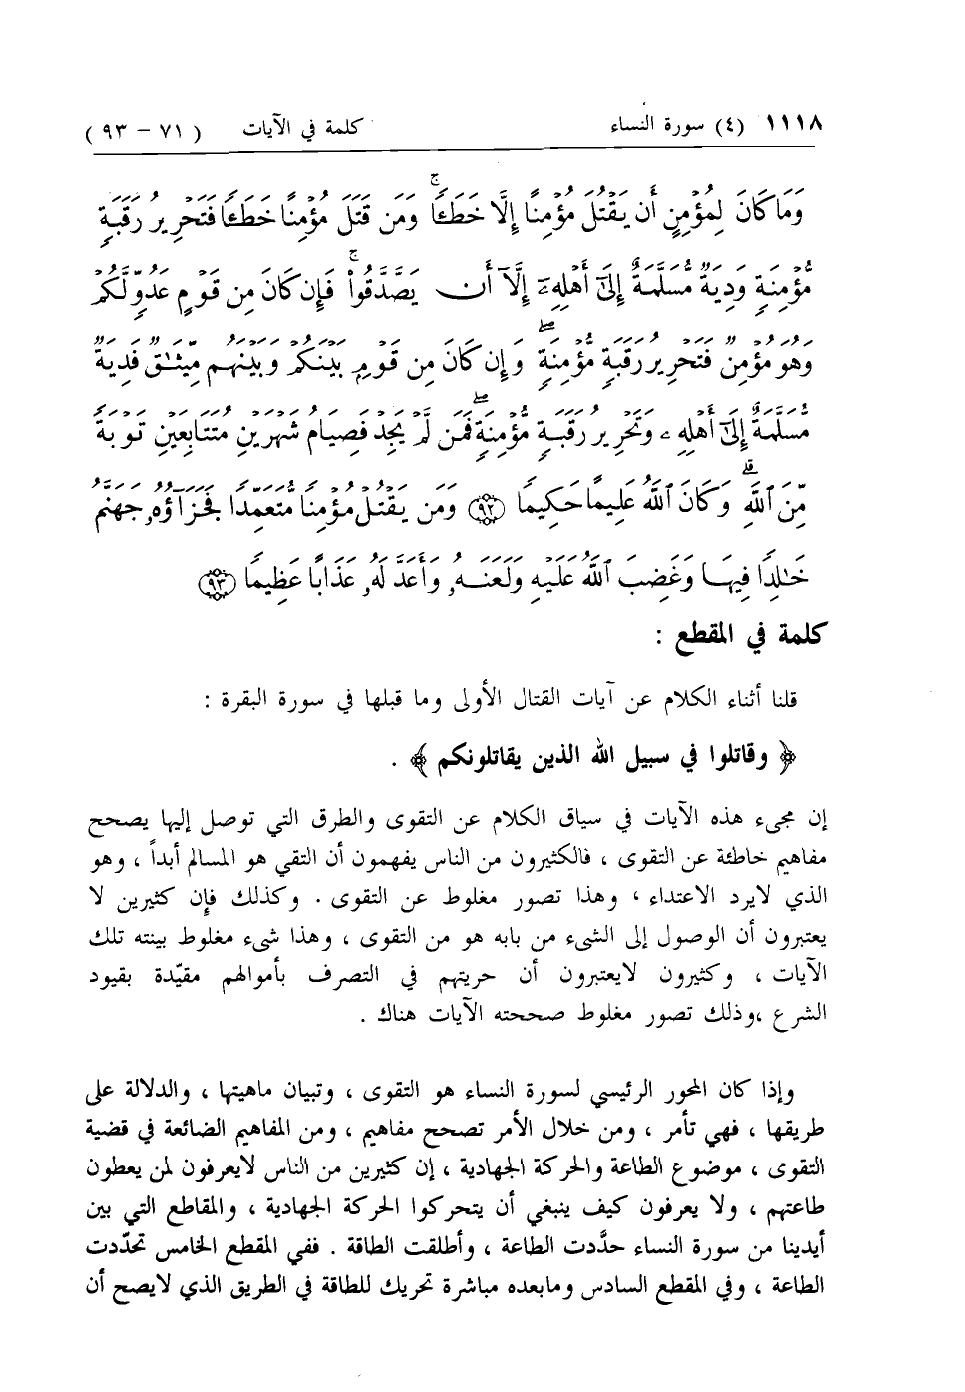 ١١١٨ (٤) سورة النساء كلمة في الآيات ( ٧١ - ٩٣ )
وَمَا كَانَ لِمُؤْمِنٍ أَن يَقْتُلَ مُؤْمِنًا إِلَّا خَطَـًٔا ۚ وَمَن قَتَلَ مُؤْمِنًا خَطَـًٔا فَتَحْرِيرُ رَقَبَةٍ
مُّؤْمِنَةٍ وَدِيَةٌ مُّسَلَّمَةٌ إِلَىٰٓ أَهْلِهِۦٓ إِلَّآ أَن يَصَّدَّقُوا۟ ۚ فَإِن كَانَ مِن قَوْمٍ عَدُوٍّ لَّكُمْ
وَهُوَ مُؤْمِنٌ فَتَحْرِيرُ رَقَبَةٍ مُّؤْمِنَةٍ ۖ وَإِن كَانَ مِن قَوْمٍۭ بَيْنَكُمْ وَبَيْنَهُم مِّيثَـٰقٌ فَدِيَةٌ
مُّسَلَّمَةٌ إِلَىٰٓ أَهْلِهِۦ وَتَحْرِيرُ رَقَبَةٍ مُّؤْمِنَةٍ ۖ فَمَن لَّمْ يَجِدْ فَصِيَامُ شَهْرَيْنِ مُتَتَابِعَيْنِ تَوْبَةً
مِّنَ ٱللَّهِ ۗ وَكَانَ ٱللَّهُ عَلِيمًا حَكِيمًا ﴿٩٢﴾ وَمَن يَقْتُلْ مُؤْمِنًا مُّتَعَمِّدًا فَجَزَآؤُهُۥ جَهَنَّمُ
خَـٰلِدًا فِيهَا وَغَضِبَ ٱللَّهُ عَلَيْهِ وَلَعَنَهُۥ وَأَعَدَّ لَهُۥ عَذَابًا عَظِيمًا ﴿٩٣﴾
كلمة في المقطع :
قلنا أثناء الكلام عن آيات القتال الأولى وما قبلها في سورة البقرة :
﴿ وقاتلوا في سبيل الله الذين يقاتلونكم ﴾ .
إن مجىء هذه الآيات في سياق الكلام عن التقوى والطرق التي توصل إليها يصحح
مفاهيم خاطئة عن التقوى ، فالكثيرون من الناس يفهمون أن التقي هو المسالم أبداً ، وهو
الذي لايرد الاعتداء ، وهذا تصور مغلوط عن التقوى . وكذلك فإن كثيرين لا
يعتبرون أن الوصول إلى الشىء من بابه هو من التقوى ، وهذا شىء مغلوط بينته تلك
الآيات ، وكثيرون لايعتبرون أن حريتهم في التصرف بأموالهم مقيّدة بقيود
الشرع ،وذلك تصور مغلوط صححته الآيات هناك .
وإذا كان المحور الرئيسي لسورة النساء هو التقوى ، وتبيان ماهيتها ، والدلالة على
طريقها ، فهي تأمر ، ومن خلال الأمر تصحح مفاهيم ، ومن المفاهيم الضائعة في قضية
التقوى ، موضوع الطاعة والحركة الجهادية ، إن كثيرين من الناس لايعرفون لمن يعطون
طاعتهم ، ولا يعرفون كيف ينبغي أن يتحركوا الحركة الجهادية ، والمقاطع التي بين
أيدينا من سورة النساء حدَّدت الطاعة ، وأطلقت الطاقة . ففي المقطع الخامس تحدّدت
الطاعة ، وفي المقطع السادس ومابعده مباشرة تحريك للطاقة في الطريق الذي لايصح أن